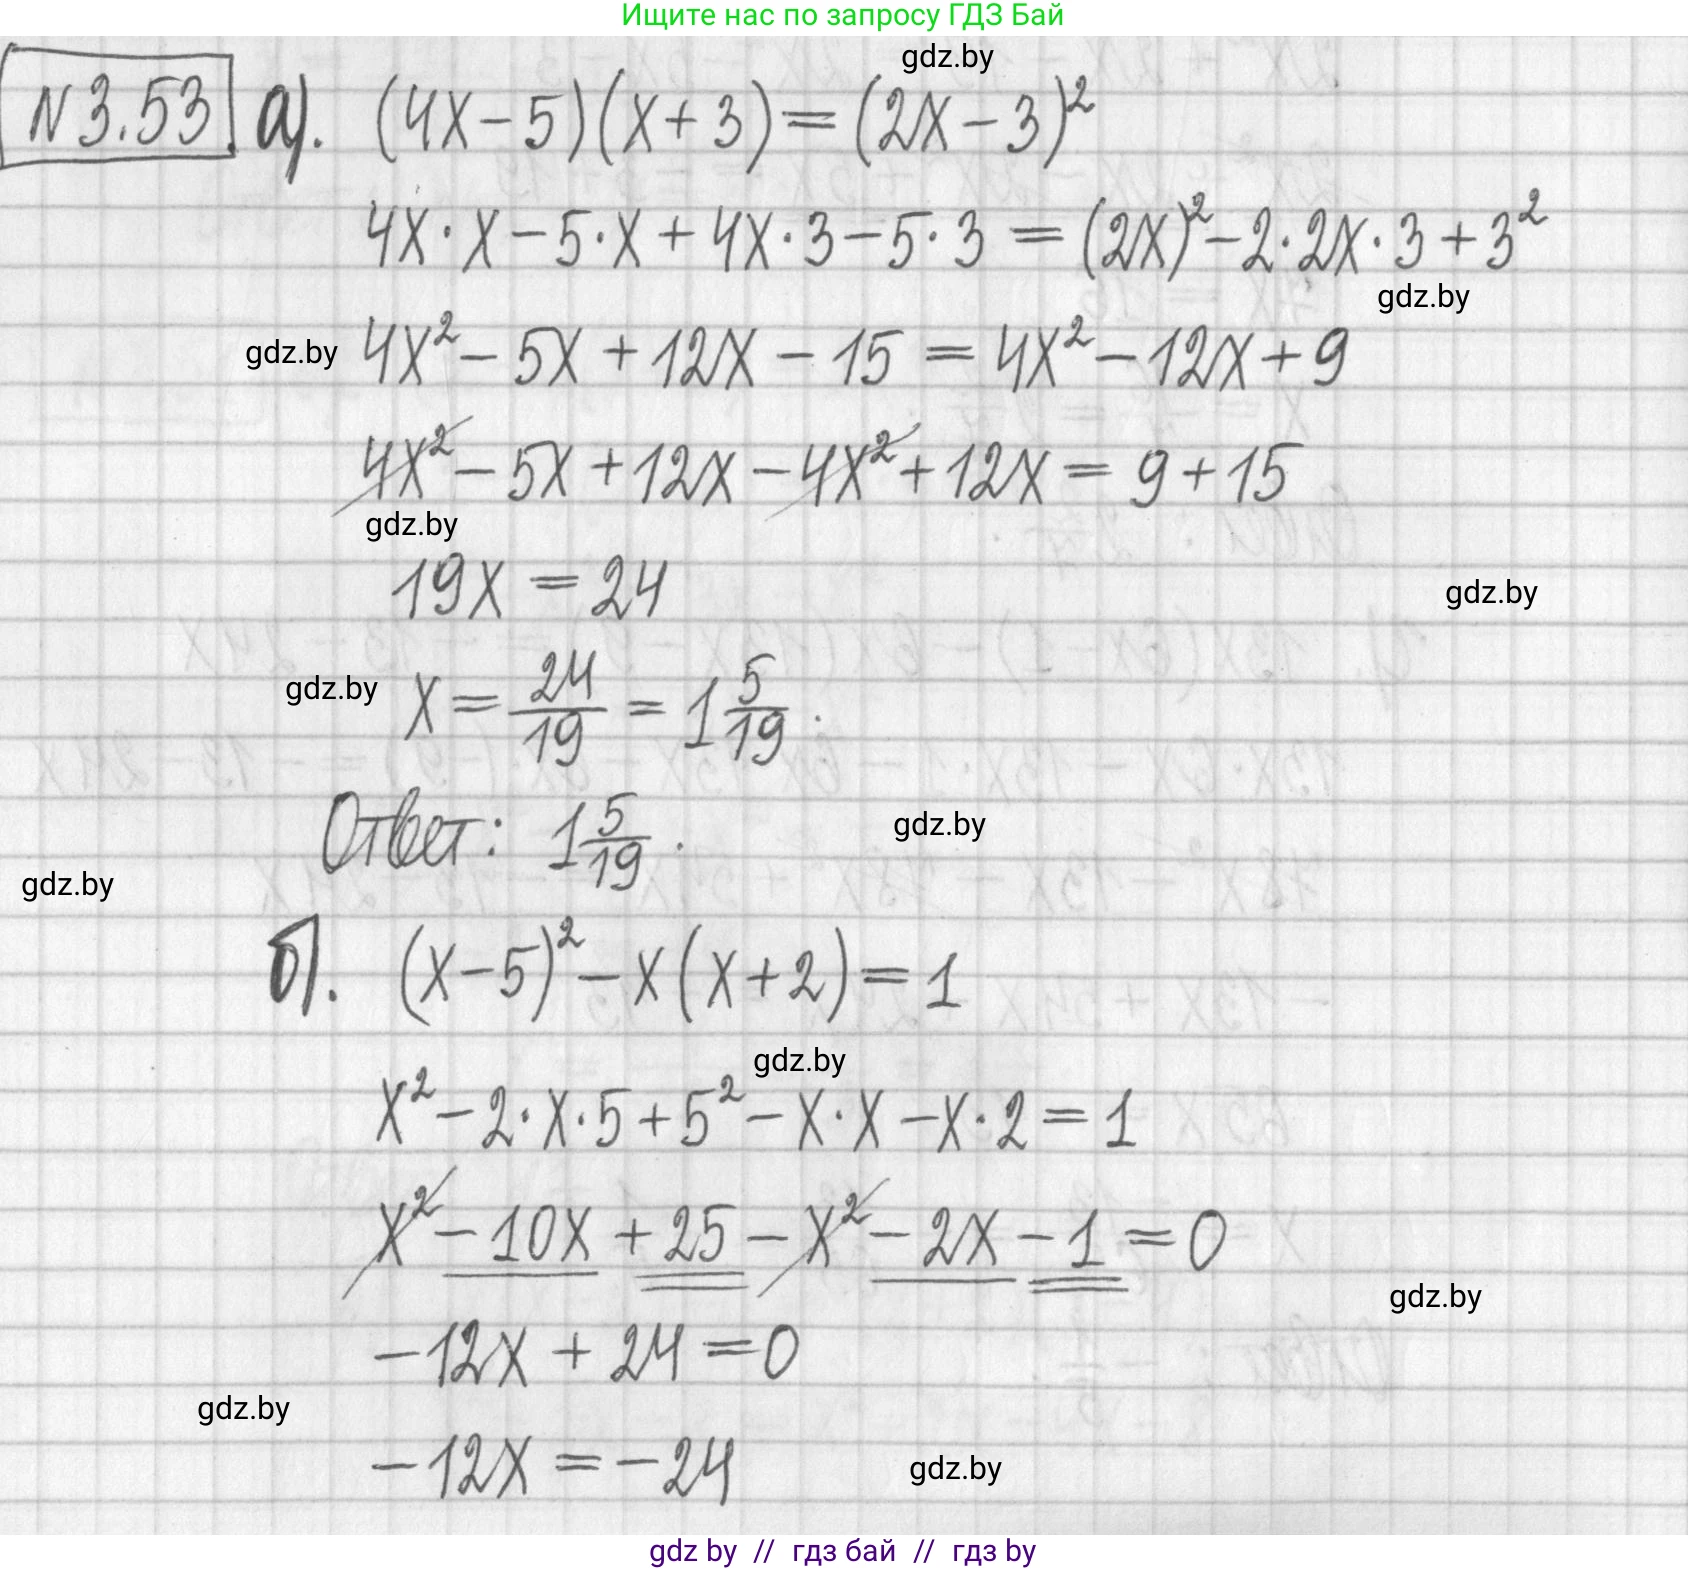 Ищите нас по запросу ГДЗ Бай
gdz.by
N 3.53. а). (4x-5)(x+3)=(2x-3)²
4x·x-5·x+4x·3-5·3=(2x)²-2·2x·3+3²
gdz.by
gdz.by 4x²-5x+12x-15=4x²-12x+9
4x²-5x+12x-4x²+12x=9+15
gdz.by
19x=24
gdz.by
gdz.by x=24/19=1 5/19.
Ответ: 1 5/19.
gdz.by
gdz.by
б). (x-5)²-x(x+2)=1
gdz.by
x²-2·x·5+5²-x·x-x·2=1
x²-10x+25-x²-2x-1=0
gdz.by
-12x+24=0
gdz.by
-12x=-24
gdz.by
gdz by // гдз бай // гдз by